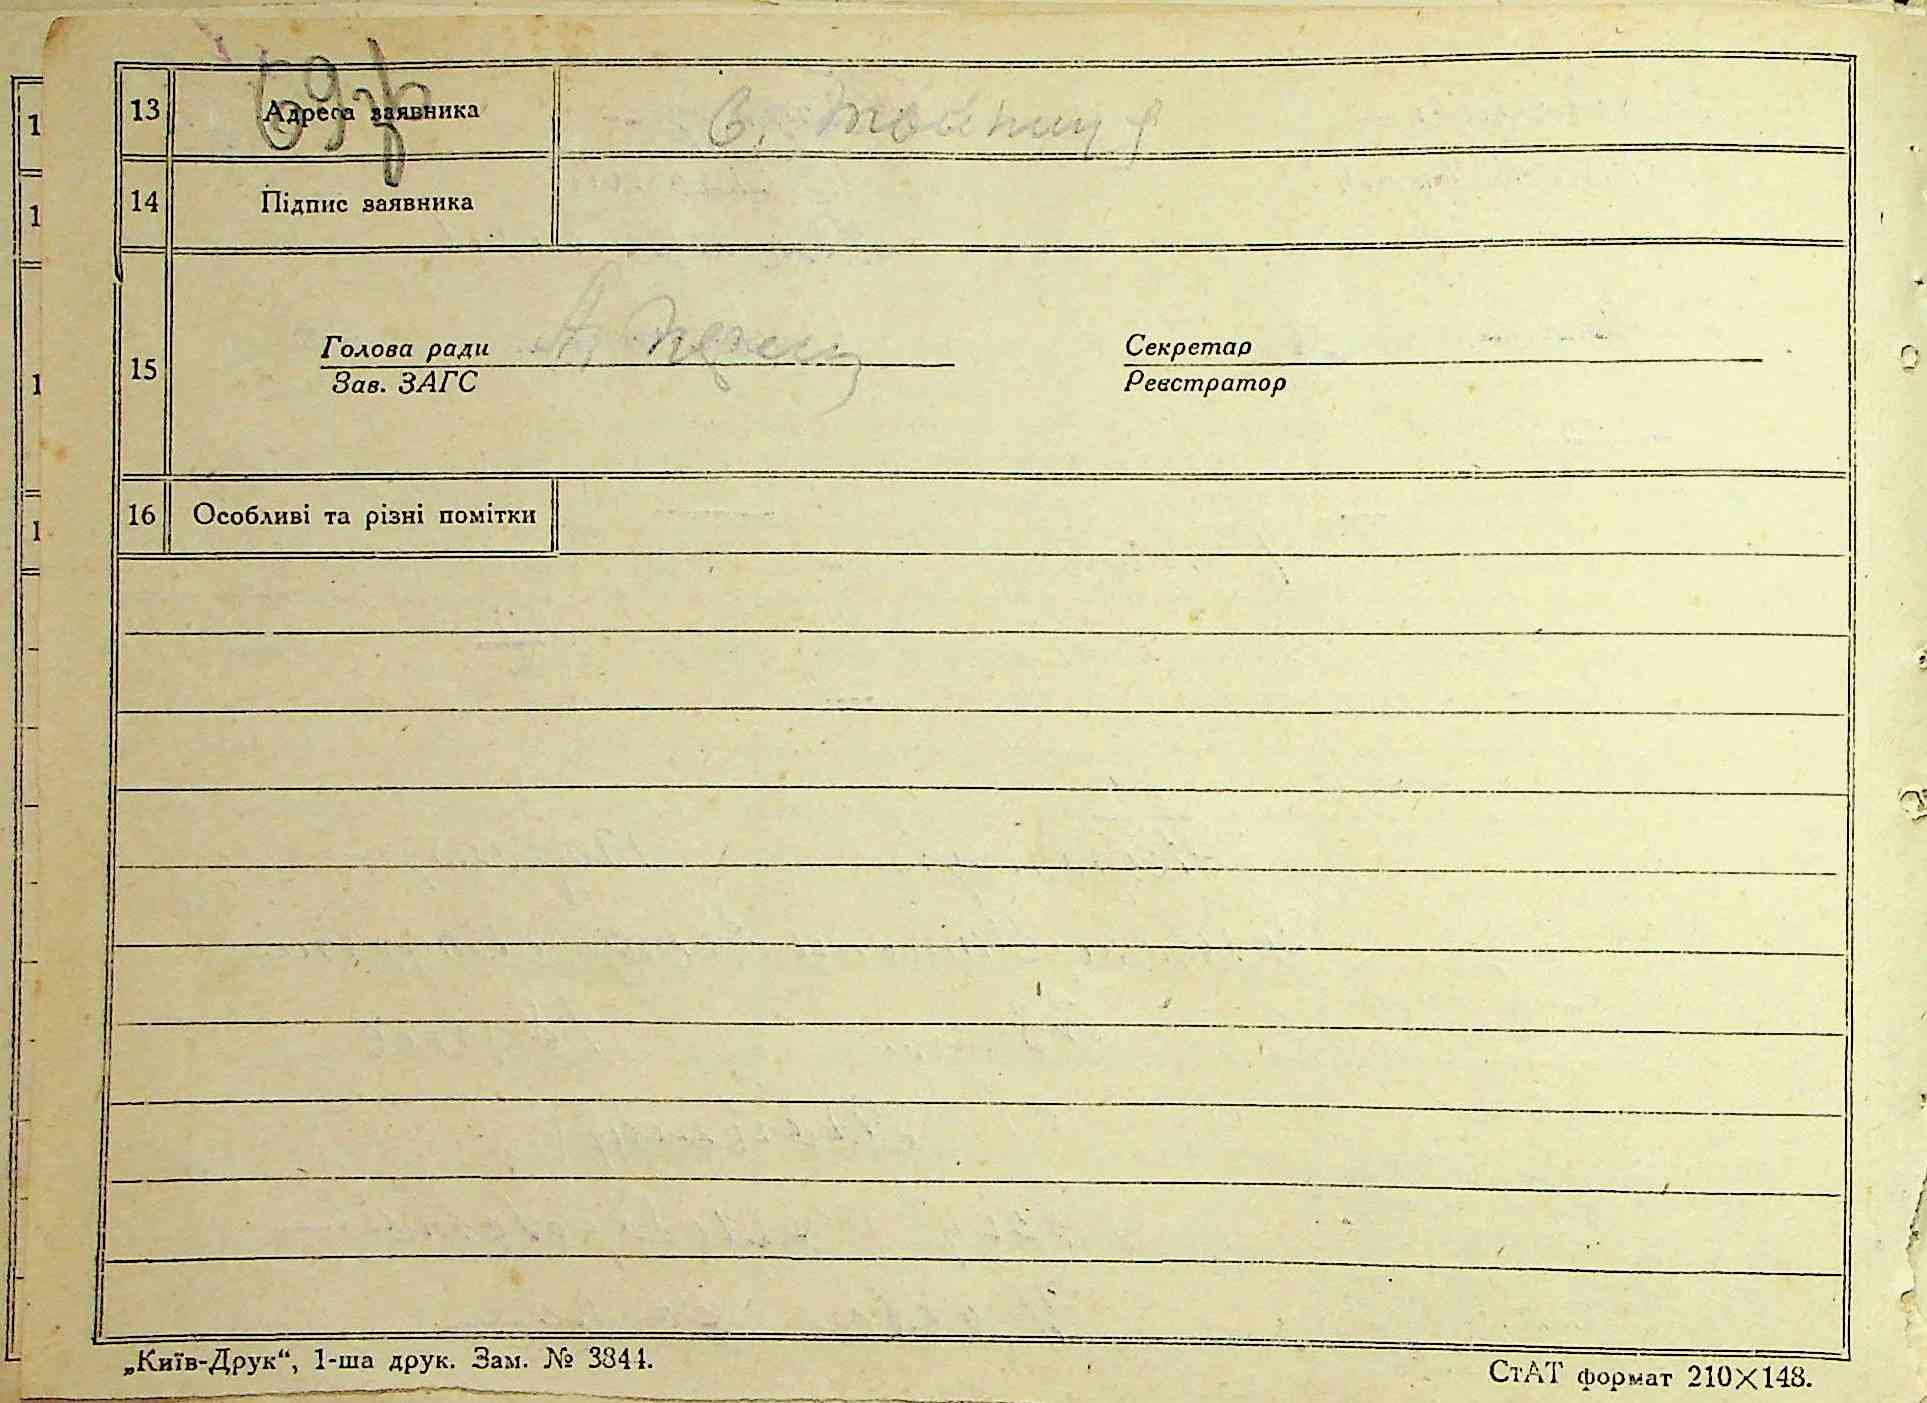 13 Адреса заявника С.
14 Підпис заявника
15 Голова ради
Зав. ЗАГС
Секретар
Реєстратор
16 Особливі та різні помітки
„Київ-Друк“, 1-ша друк. Зам. № 3844.
СтАТ формат 210×148.